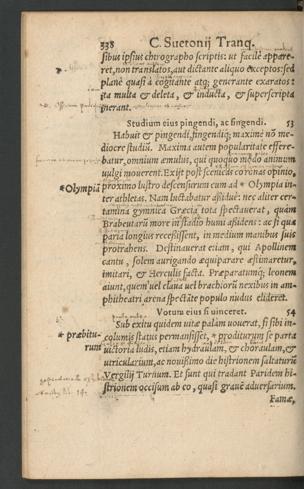 338 C. Suetonij Tranq.
sibus ipsius chirographo scriptis: ut facilè appare-
ret, non translatos, aut dictante aliquo exceptos: sed
planè quasi à cogitante atq; generante exaratos:
ita multa & deleta, & inducta, & superscripta
inerant.
Studium eius pingendi, ac fingendi. 53
Habuit & pingendi, fingendiq; maximè nō me-
diocre studiũ. Maxima autem popularitate effere-
batur, omnium æmulus, qui quoquo modo animum
uulgi mouerent. Exijt post scenicas coronas opinio,
*Olympiā
proximo lustro descensurum eum ad * Olympia in-
ter athletas. Nam luctabatur aßiduè: nec aliter cer-
tamina gymnica Græcia tota spectauerat, quàm
Brabeutarũ more in stadio humi aßidens: ac si quæ
paria longius recesissent, in medium manibus suis
protrahens. Destinauerat etiam, qui Apollinem
cantu, solem aurigando æquiparare æstimaretur,
imitari, & Herculis facta. Præparatumq; leonem
aiunt, quem uel claua uel brachiorũ nexibus in am-
phitheatri arena spectāte populo nudus elideret.
Votum eius si uinceret. 54
Sub exitu quidem uitæ palàm uouerat, si sibi in-
* præbitu-
rum
columis status permansisset, * proditurum se partæ
uictoria ludis, etiam hydraulam, & choraulam, &
utricularium, ac nouißimo die histrionem saltaturũ
Vergilij Turnum. Et sunt qui tradant Paridem hi-
strionem occisum ab eo, quasi grauē aduersarium.
Famæ,